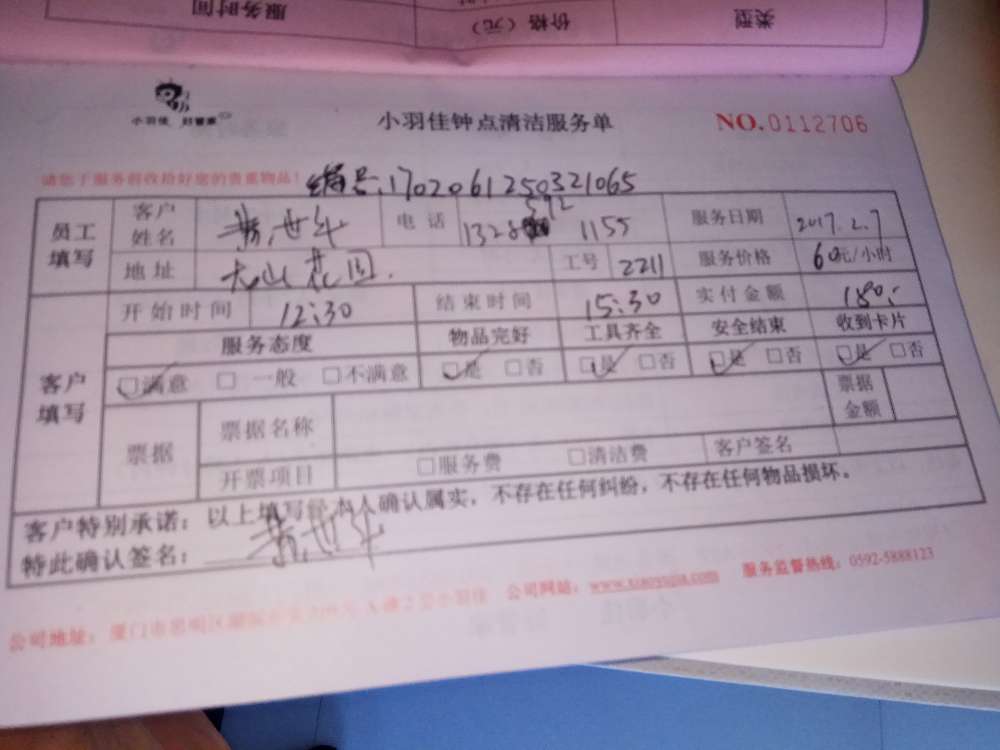 服务时间 价格（元） 类型
小羽佳 好管家
小羽佳钟点清洁服务单 NO.0112706
请您于服务前收拾好您的贵重物品！ 编号:1702061250321065
员工填写 客户姓名 电话 1328 592 1155 服务日期 2017.2.7
地址 花园 工号 2211 服务价格 60元/小时
客户填写 开始时间 12:30 结束时间 15:30 实付金额 180.
服务态度 物品完好 工具齐全 安全结束 收到卡片
☑满意 □一般 □不满意 ☑是 □否 ☑是 □否 ☑是 □否 ☑是 □否
票据 票据名称 票据金额
开票项目 □服务费 □清洁费 客户签名
客户特别承诺：以上填写经本人确认属实，不存在任何纠纷，不存在任何物品损坏。
特此确认签名：
公司地址：厦门市思明区 小羽佳 公司网站：www.xiaoyujia.com 服务监督热线：0592-5888123